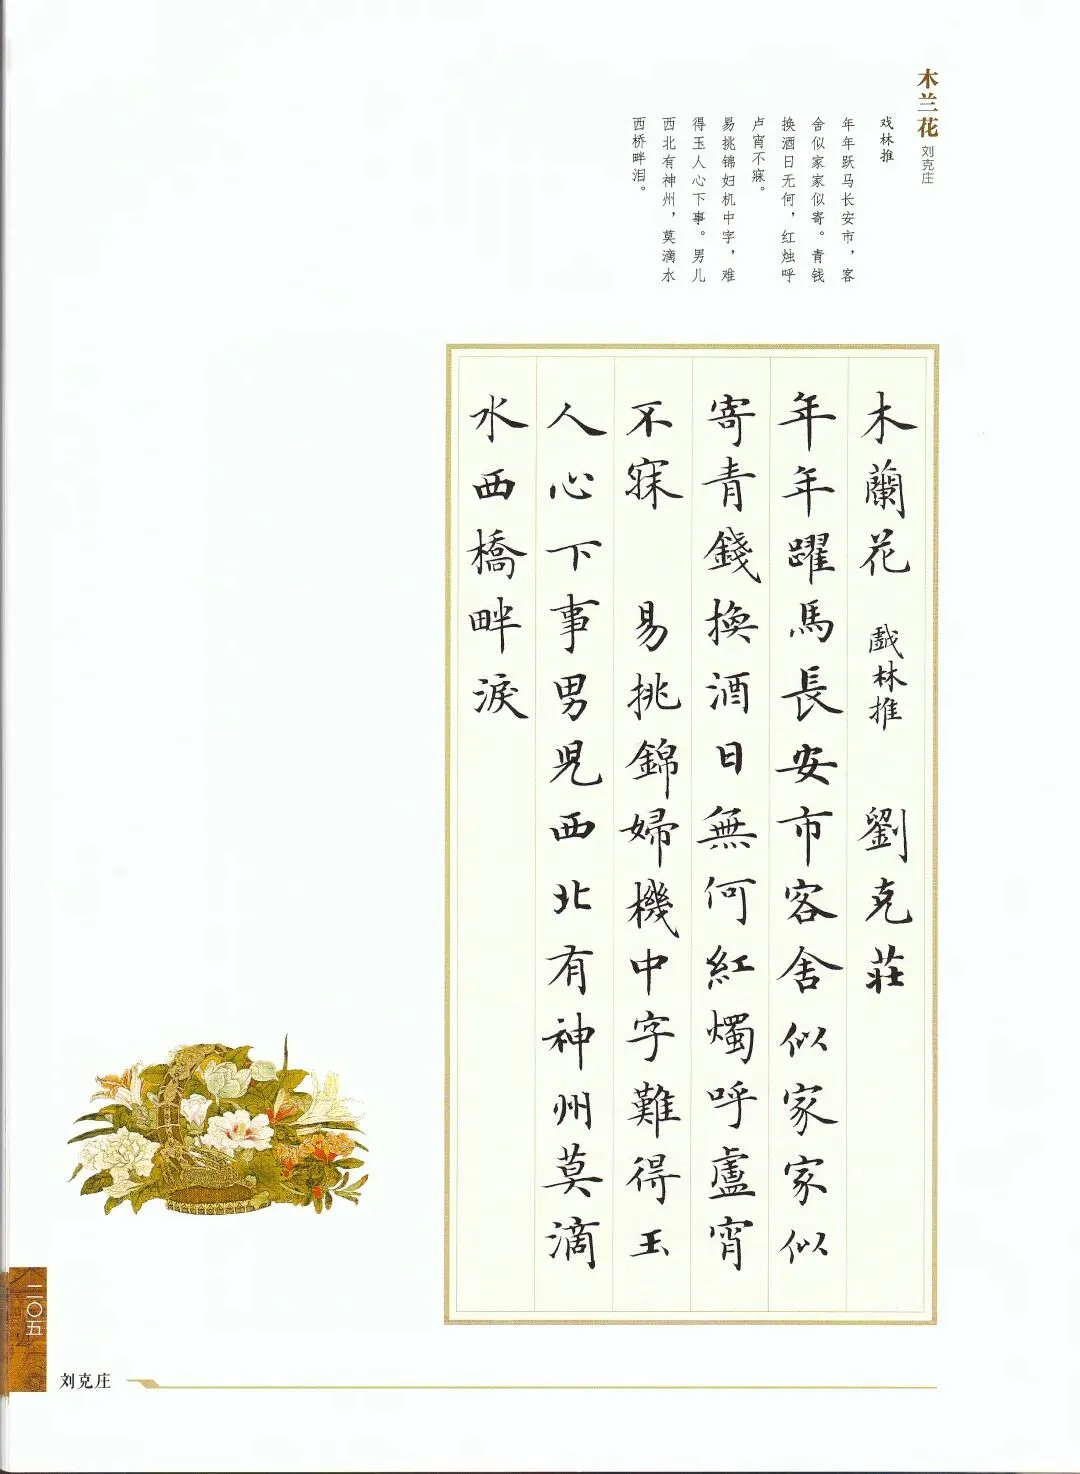 木兰花 刘克庄
戏林推
年年跃马长安市，客
舍似家家似寄。青钱
换酒日无何，红烛呼
卢宵不寐。
易挑锦妇机中字，难
得玉人心下事。男儿
西北有神州，莫滴水
西桥畔泪。
木蘭花 戲林推 劉克莊
年年躍馬長安市客舍似家家似
寄青錢換酒日無何紅燭呼盧宵
不寐 易挑錦婦機中字難得玉
人心下事男児西北有神州莫滴
水西橋畔淚
二〇五
刘克庄